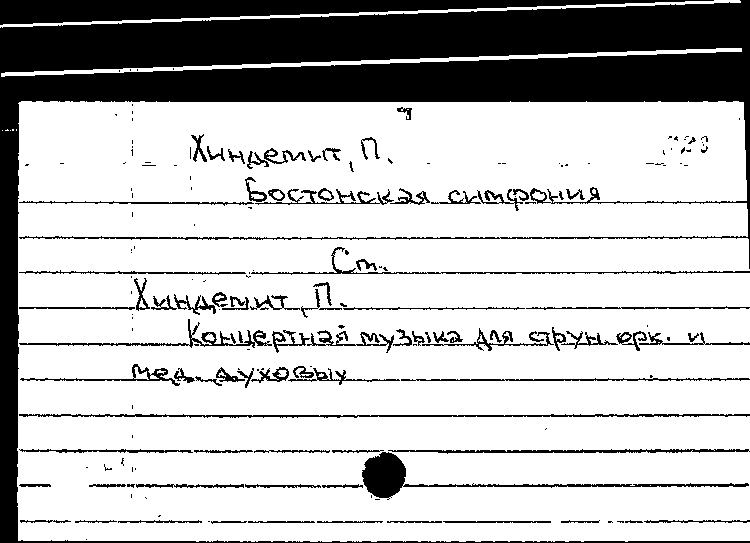 Хиндемит, П.
Бостонская симфония
См.
Хиндемит, П.
Концертная музыка для струн. орк. и
мед. духовых